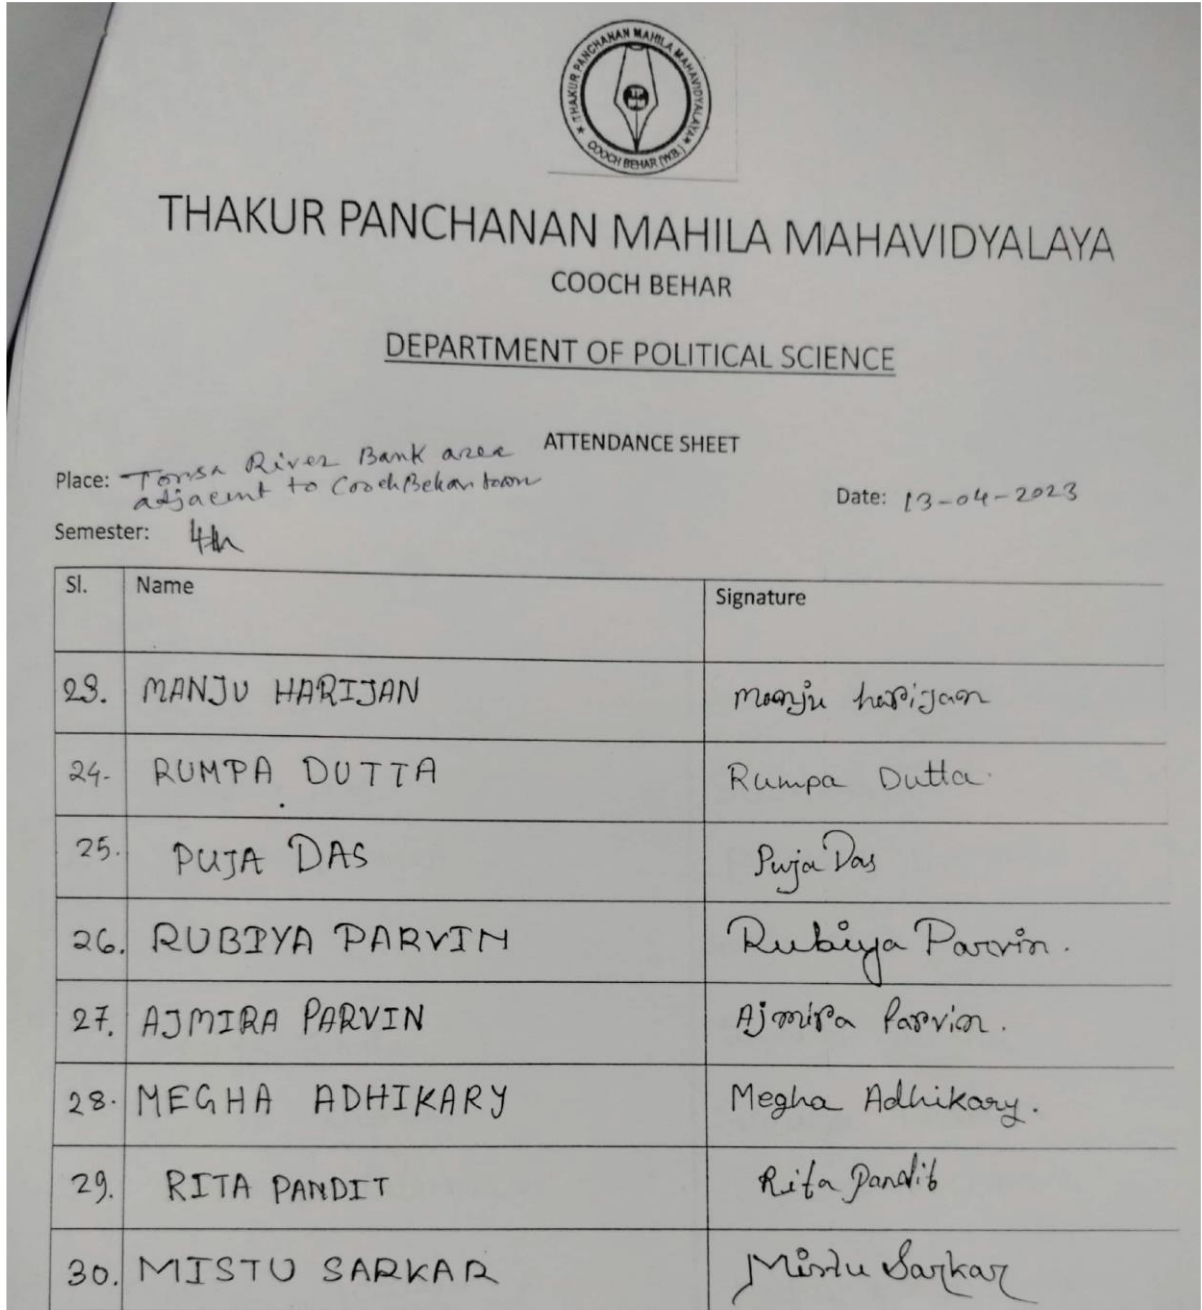 THAKUR PANCHANAN MAHILA MAHAVIDYALAYA
COOCH BEHAR (W.B.)
THAKUR PANCHANAN MAHILA MAHAVIDYALAYA
COOCH BEHAR
DEPARTMENT OF POLITICAL SCIENCE
ATTENDANCE SHEET
Place: Torsa River Bank area
adjacent to CoochBehar town
Date: 13-04-2023
Semester: 4th
Sl. Name Signature
23. MANJU HARIJAN Manju harijan
24. RUMPA DUTTA Rumpa Dutta
25. PUJA DAS Puja Das
26. RUBIYA PARVIN Rubiya Parvin.
27. AJMIRA PARVIN Ajmira Parvin.
28. MEGHA ADHIKARY Megha Adhikary.
29. RITA PANDIT Rita Pandit
30. MISTU SARKAR Mistu Sarkar